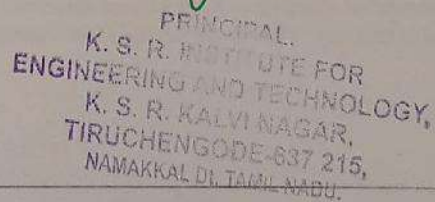 PRINCIPAL.
K. S. R. INSTITUTE FOR
ENGINEERING AND TECHNOLOGY,
K. S. R. KALVI NAGAR,
TIRUCHENGODE-637 215,
NAMAKKAL Dt, TAMIL NADU.